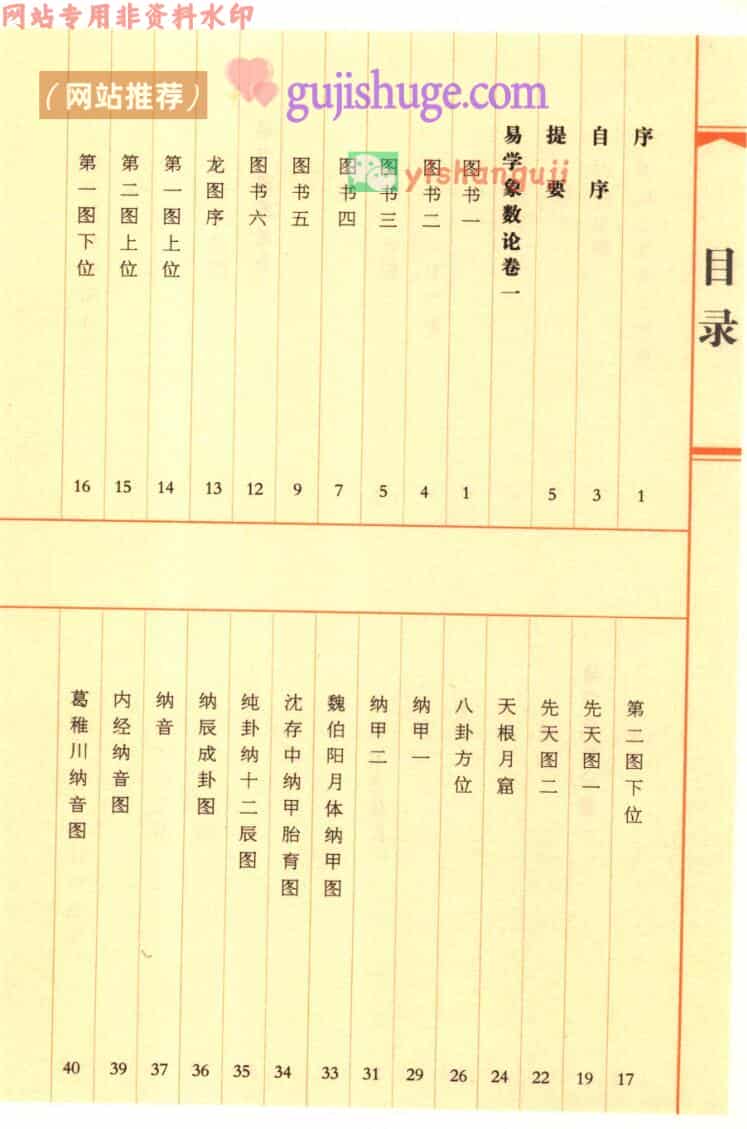 网站专用非资料水印
（网站推荐）
gujishuge.com
yishanguji
目录
序 1
自序 3
提要 5
易学象数论卷一
图书一 1
图书二 4
图书三 5
图书四 7
图书五 9
图书六 12
龙图序 13
第一图上位 14
第二图上位 15
第一图下位 16
第二图下位 17
先天图一 19
先天图二 22
天根月窟 24
八卦方位 26
纳甲一 29
纳甲二 31
魏伯阳月体纳甲图 33
沈存中纳甲胎育图 34
纯卦纳十二辰图 35
纳辰成卦图 36
纳音 37
内经纳音图 39
葛稚川纳音图 40